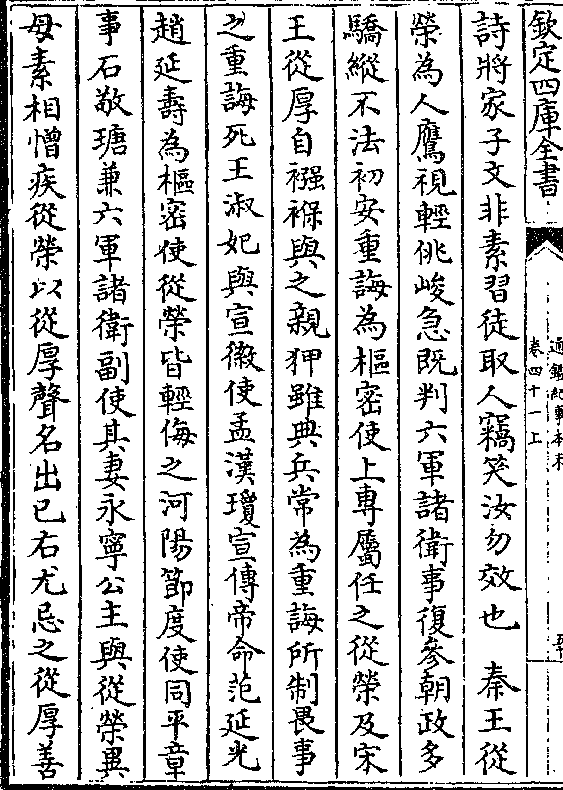 欽定四庫全書
通鑑紀事本末
卷四十一上
詩將家子文非素習徒取人竊笑汝勿效也　秦王從
榮為人鷹視輕佻峻急既判六軍諸衛事復參朝政多
驕縱不法初安重誨為樞密使上專屬任之從榮及宋
王從厚自襁褓與之親狎雖典兵常為重誨所制畏事
之重誨死王淑妃與宣徽使孟漢瓊宣傳帝命范延光
趙延壽為樞密使從榮皆輕侮之河陽節度使同平章
事石敬瑭兼六軍諸衛副使其妻永寧公主與從榮異
母素相憎疾從榮以從厚聲名出已右尤忌之從厚善